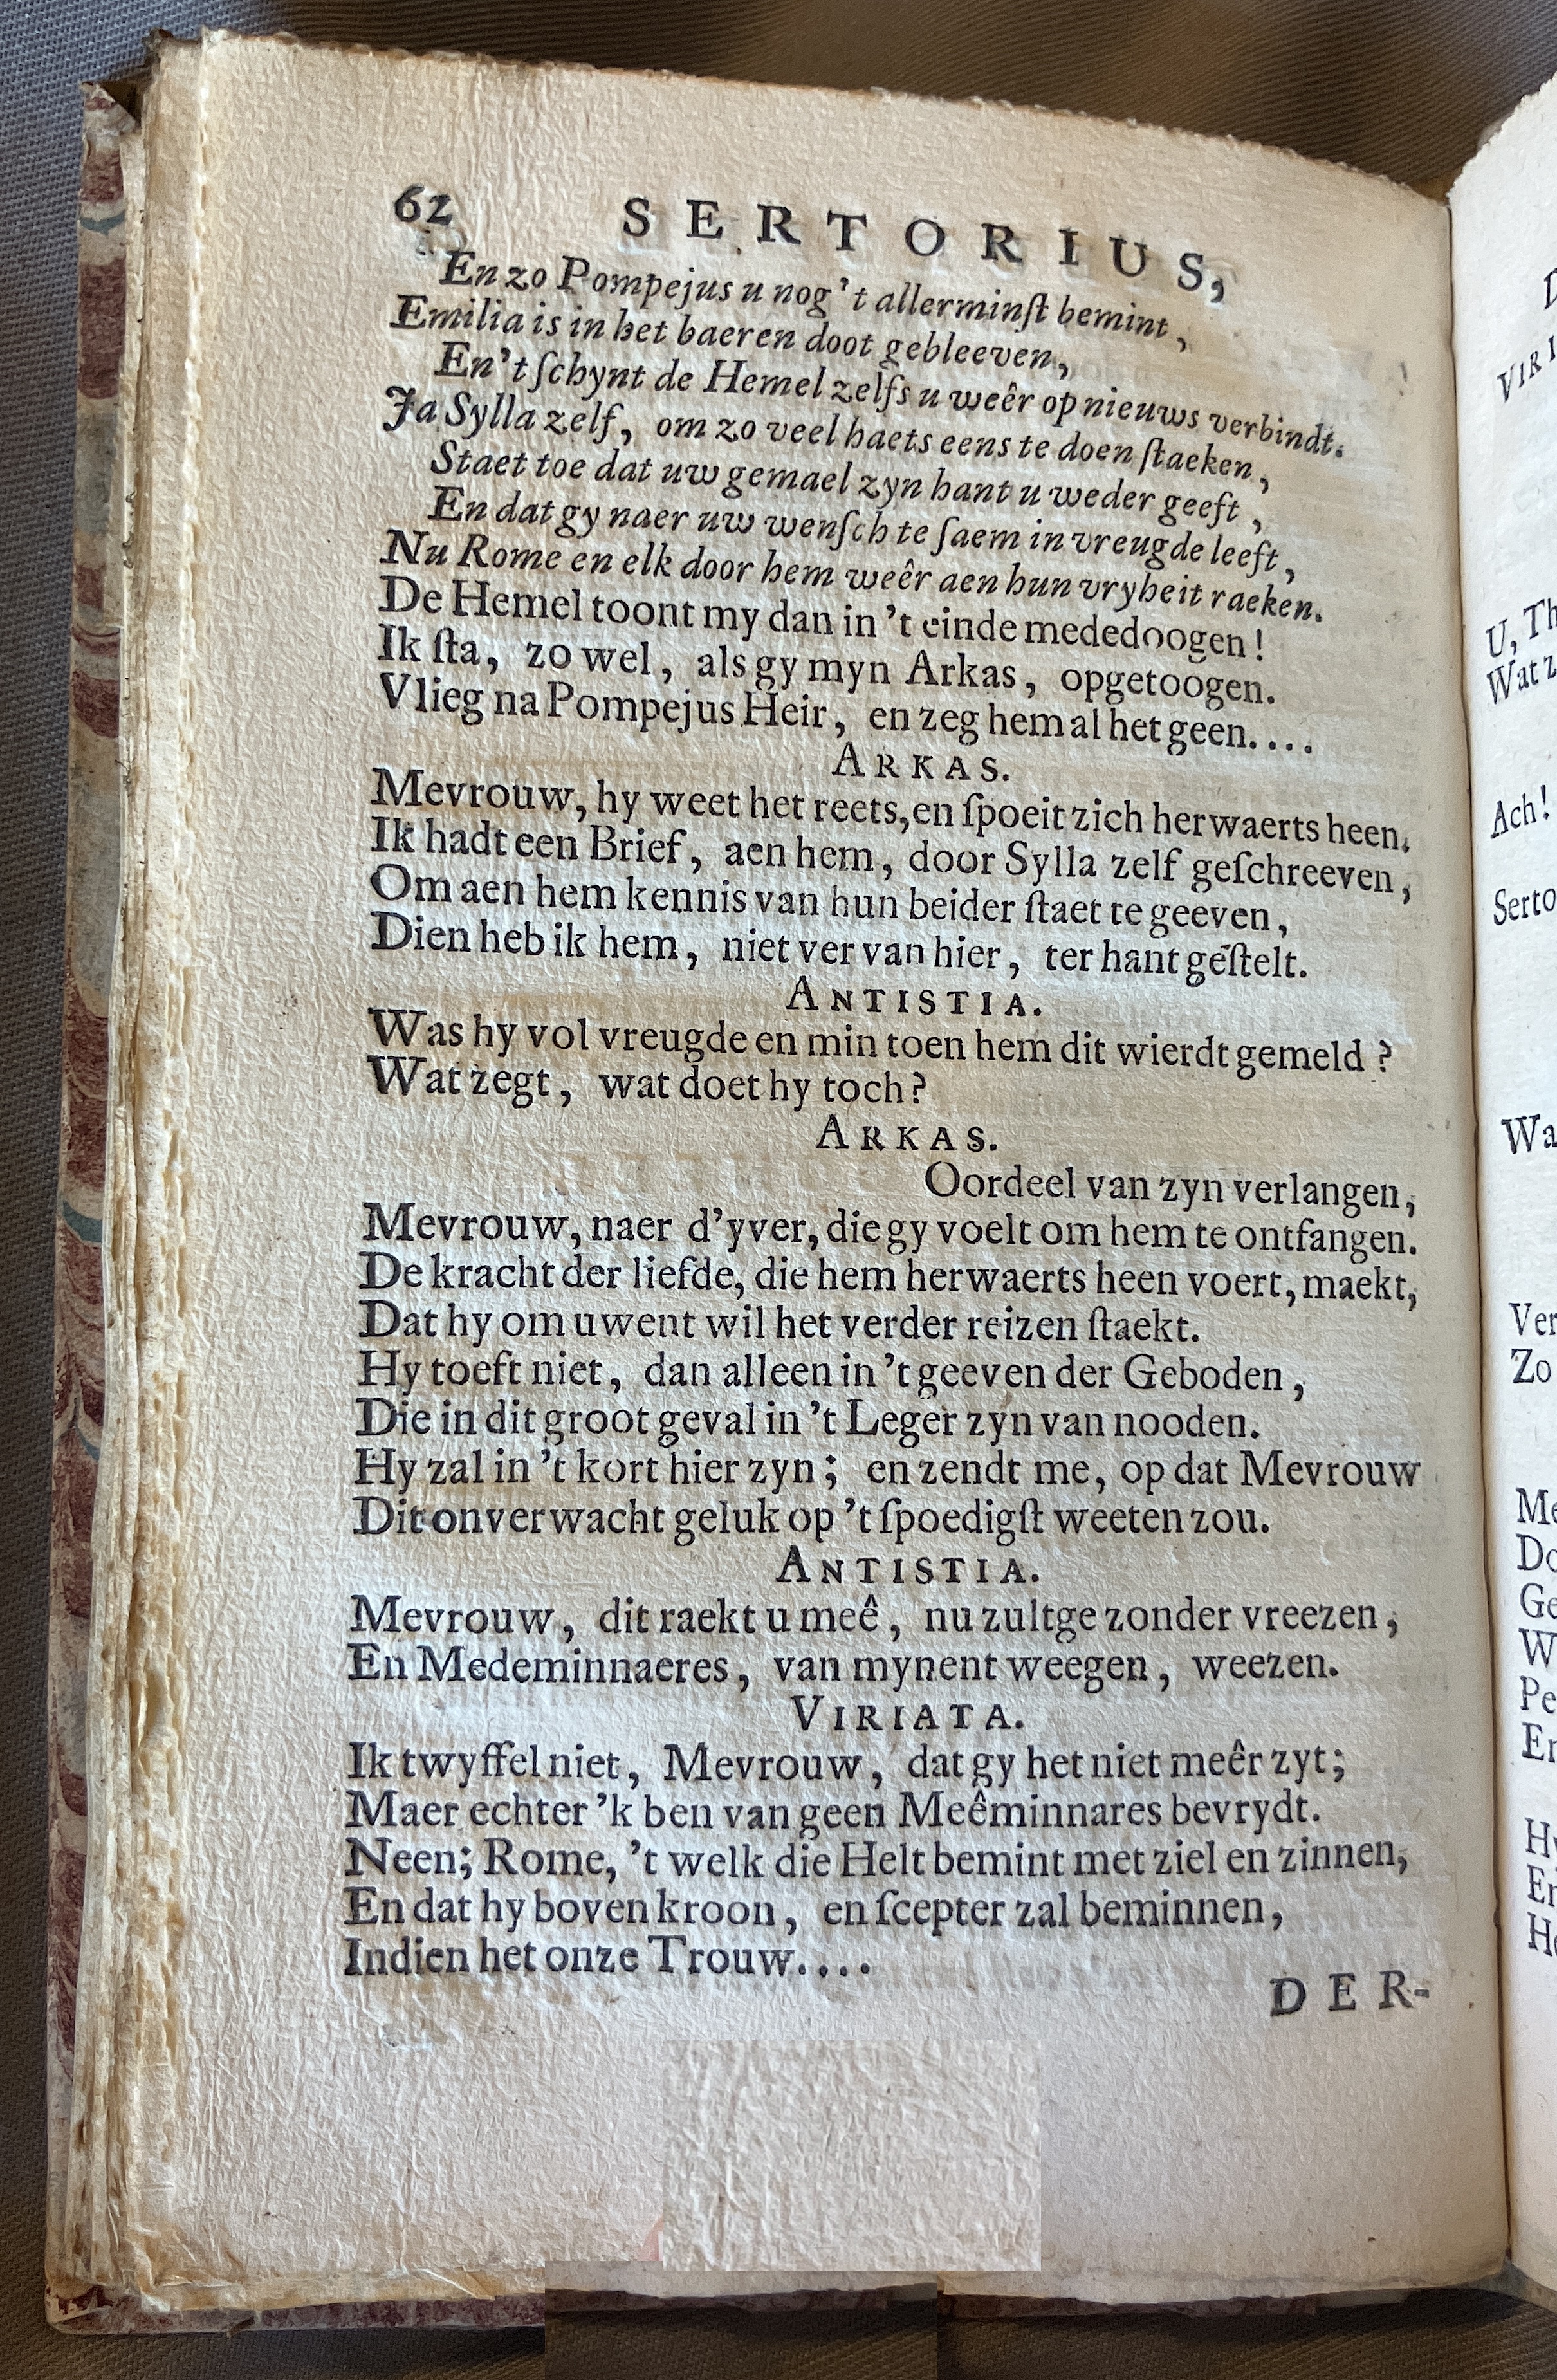 62 SERTORIUS,
En zo Pompejus u nog 't allerminſt bemint,
Emilia is in het baeren doot gebleeven,
En 't ſchynt de Hemel zelfs u weêr op nieuws verbindt.
Ja Sylla zelf, om zo veel haets eens te doen ſtaeken,
Staet toe dat uw gemael zyn hant u weder geeft,
En dat gy naer uw wenſch te ſaem in vreugde leeft,
Nu Rome en elk door hem weêr aen hun vryheit raeken.
De Hemel toont my dan in 't einde mededoogen!
Ik ſta, zo wel, als gy myn Arkas, opgetoogen.
Vlieg na Pompejus Heir, en zeg hem al het geen....
ARKAS.
Mevrouw, hy weet het reets, en ſpoeit zich herwaerts heen.
Ik hadt een Brief, aen hem, door Sylla zelf geſchreeven,
Om aen hem kennis van hun beider ſtaet te geeven,
Dien heb ik hem, niet ver van hier, ter hant geſtelt.
ANTISTIA.
Was hy vol vreugde en min toen hem dit wierdt gemeld?
Wat zegt, wat doet hy toch?
ARKAS.
Oordeel van zyn verlangen,
Mevrouw, naer d'yver, die gy voelt om hem te ontfangen.
De kracht der liefde, die hem herwaerts heen voert, maekt,
Dat hy om uwent wil het verder reizen ſtaekt.
Hy toeft niet, dan alleen in 't geeven der Geboden,
Die in dit groot geval in 't Leger zyn van nooden.
Hy zal in 't kort hier zyn; en zendt me, op dat Mevrouw
Dit onverwacht geluk op 't ſpoedigſt weeten zou.
ANTISTIA.
Mevrouw, dit raekt u meê, nu zultge zonder vreezen,
En Medeminnaeres, van mynent weegen, weezen.
VIRIATA.
Ik twyffel niet, Mevrouw, dat gy het niet meêr zyt;
Maer echter 'k ben van geen Meêminnares bevrydt.
Neen; Rome, 't welk die Helt bemint met ziel en zinnen,
En dat hy boven kroon, en ſcepter zal beminnen,
Indien het onze Trouw....
DER-
VIRI
U, Th
Wat z
Ach!
Serto
Wa
Ver
Zo
Me
Do
Ge
W
Pe
En
Hy
En
He